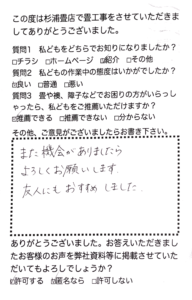 この度は杉浦畳店で畳工事をさせていただきま
してありがとうございました。
質問1 私どもをどちらでお知りになりましたか?
□チラシ □ホームページ ☑紹介 □その他
質問2 私どもの作業中の態度はいかがでしたか?
☑良い □普通 □悪い
質問3 畳や襖、障子などでお困りの方がいらっし
ゃったら、私どもをご推薦いただけますか?
☑推薦できる □推薦できない □分からない
その他、ご意見がございましたらお書き下さい。
また機会がありましたら
よろしくお願いします。
友人にもおすすめしました。
ありがとうございました。お答えいただきまし
たお客様のお声を弊社資料等に掲載させていた
だいてもよろしでしょうか?
☑許可する ☑匿名なら □許可しない